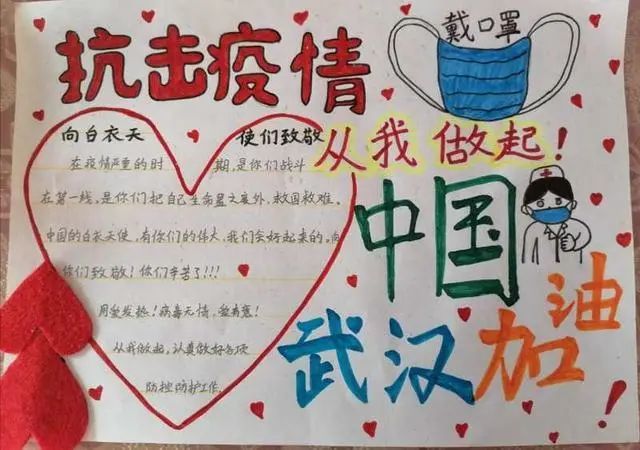 抗击疫情
戴口罩
从我做起!
向白衣天使们致敬
在疫情严重的时期,是你们战斗
在第一线,是你们把自己生命置之度外,救国救难。
中国的白衣天使,有你们的伟大,我们会好起来的,向
你们致敬!你们辛苦了!!!
用爱发热!病毒无情,爱有意!
从我做起,认真做好各项
防控防护工作.
中国
武汉加油!